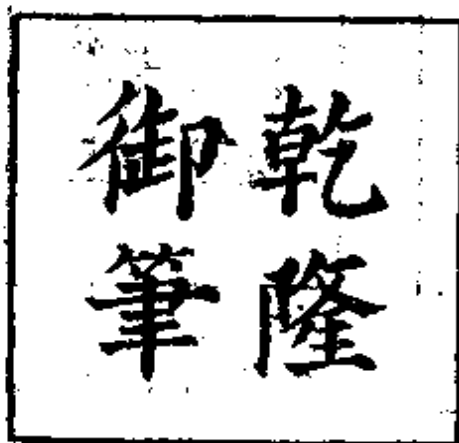 乾隆
御筆